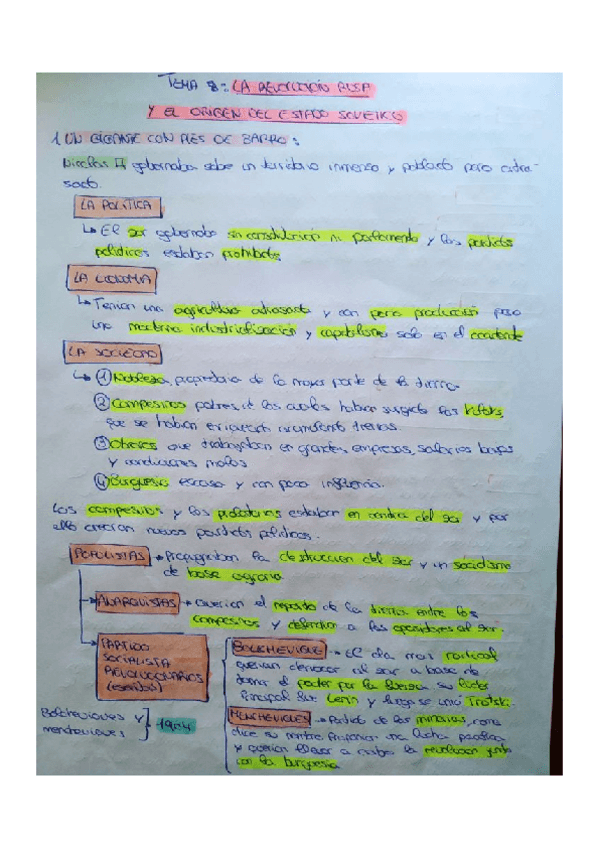 TEMA 8: LA REVOLUCIÓN RUSA
Y EL ORIGEN DEL ESTADO SOVIÉTICO
1. UN GIGANTE CON PIES DE BARRO:
Nicolas II gobernaba sobre un territorio inmenso y poblado pero atra-
sado.
LA POLITICA
↳ El zar gobernaba sin constitución ni parlamento y los partidos
politicos estaban prohibidos
LA ECONOMIA
↳ Tenian una agricultura atrasada y con poca producción pero
una moderna industrialización y capitalismo solo en el occidente
LA SOCIEDAD
↳ ① Nobleza, propietaria de la mayor parte de la tierra.
② Campesinos pobres, de los cuales habían surgido los kulaks,
que se habían enriquecido acumulando tierras.
③ Obreros que trabajaban en grandes empresas, salarios bajos
y condiciones malas
④ Burguesia escasa y con poca influencia.
Los campesinos y los proletarios estaban en contra del zar y por
ello crearon nuevos partidos politicos.
POPULISTAS → Propugnaban la destrucción del zar y un socialismo
de base agraria
ANARQUISTAS → Querian el reparto de la tierra entre los
campesinos y defendian a los opositores al zar.
PARTIDO
SOCIALISTA
REVOLUCIONARIOS
BOLCHEVIQUE → El ala mas radical
querian derrocar al zar a base de
tomar el poder por la fuerza su lider
principal fue Lenin y luego se unió Trotski.
Bolcheviques y
mencheviques } 1904
MENCHEVIQUES → Partido de las minorias, como
dice su nombre una lucha pacifica
y querian llevar a cabo la revolucion junto
con la burguesia